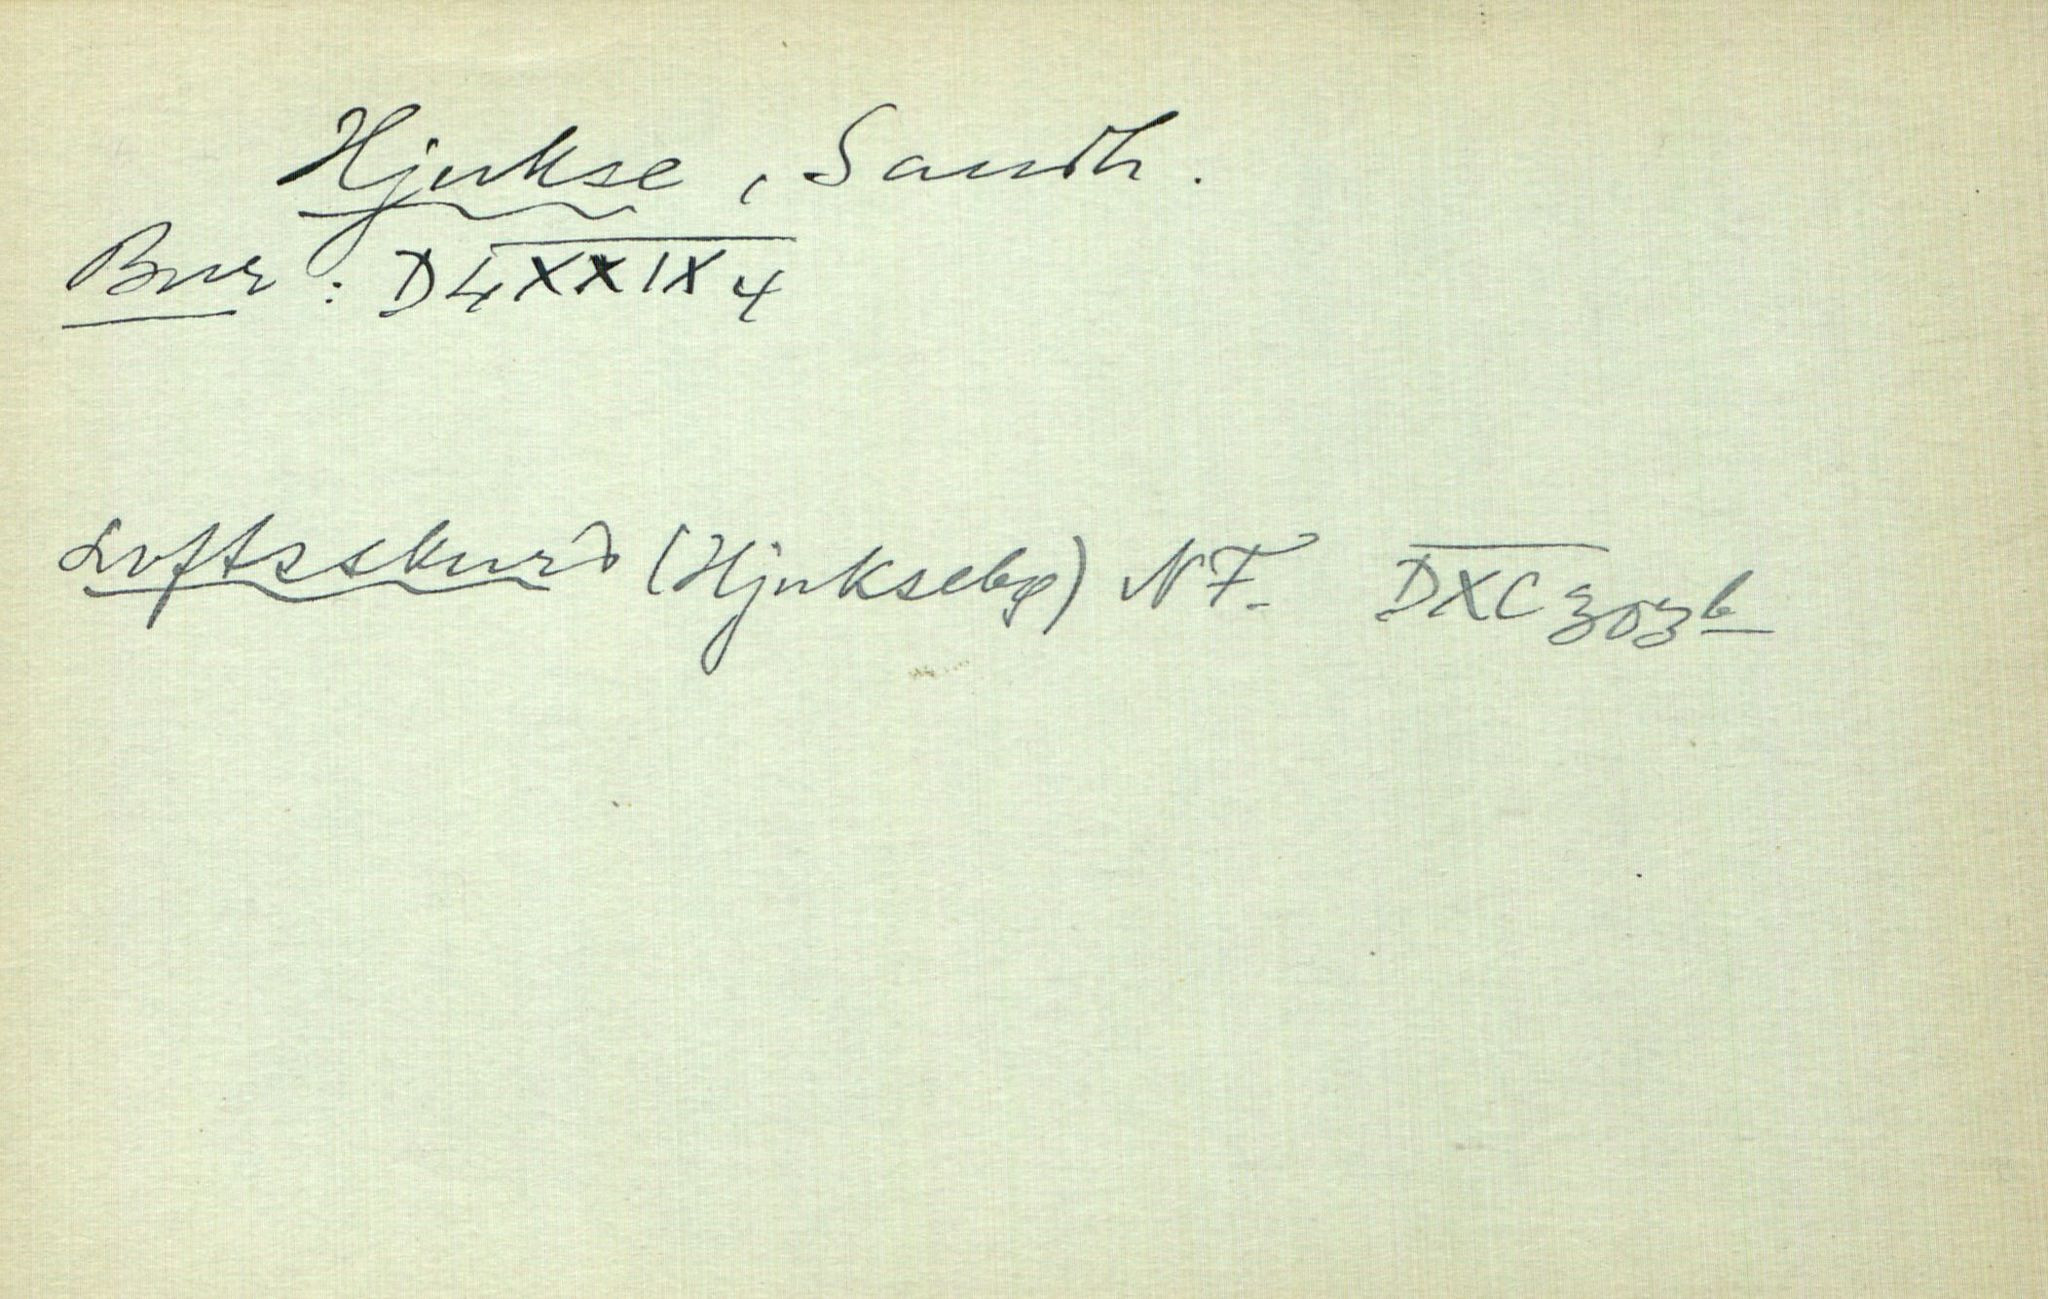 Hjukse, Saudh.
Bur: D LXXXIX 4
Loftsskurd (Hjuksebø) NF. DXC 303 b